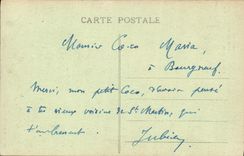 CARTE POSTALE
Monsieur Coco Maria,
à Bourgneuf.
Merci, mon petit Coco, d'avoir pensé
à tes vieux voisins de St Martin, qui
t'embrassent.